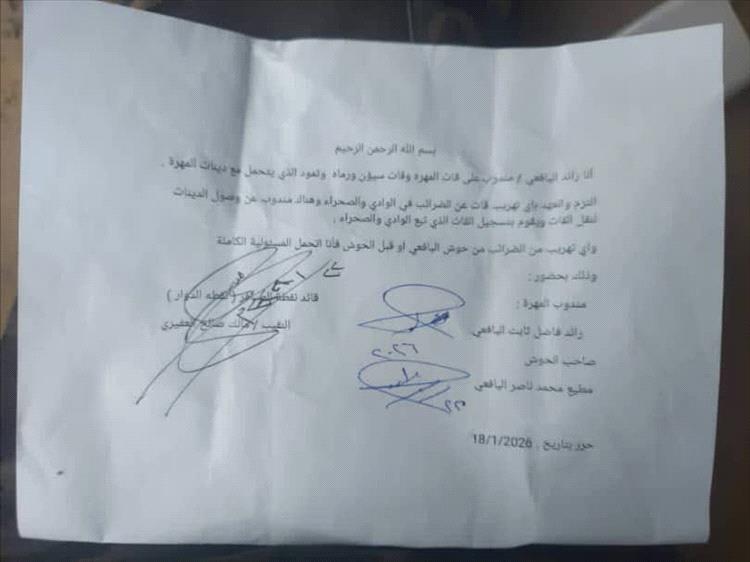 بسم الله الرحمن الرحيم
أنا رائد اليافعي / مندوب على قات المهره وقات سيؤن ورماه وثمود الذي يتحمل مع دينات المهرة .
التزم واتعهد بأي تهريب قات عن الضرائب في الوادي والصحراء وهناك مندوب عن وصول الدينات
لنقل القات ويقوم بتسجيل القات الذي تبع الوادي والصحراء .
وأي تهريب من الضرائب من حوش اليافعي او قبل الحوش فأنا اتحمل المسئولية الكاملة
وذلك بحضور :
مندوب المهرة :
قائد نقطة ( نقطه الدوار )
رائد فاضل ثابت اليافعي
النقيب / مالك صالح العفيري
صاحب الحوش
٢٠٢٦
مطيع محمد ناصر اليافعي
حرر بتاريخ . 18/1/2026